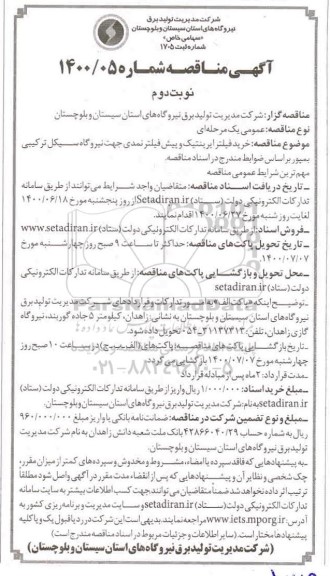 شرکت مدیریت تولید برق
نیروگاه‌های استان سیستان و بلوچستان
«سهامی خاص»
شماره ثبت ۱۷۰۵
آگهی مناقصه شماره ۱۴۰۰/۰۵
نوبت دوم
مناقصه گزار: شرکت مدیریت تولید برق نیروگاه‌های استان سیستان و بلوچستان
نوع مناقصه: عمومی یک مرحله‌ای
موضوع مناقصه: خرید فیلتر ایرینتیک و پیش فیلتر نمدی جهت نیروگاه سیکل ترکیبی
بمپور بر اساس ضوابط مندرج در اسناد مناقصه.
مهم‌ترین شرایط عمومی مناقصه
ـ تاریخ دریافت اسناد مناقصه: متقاضیان واجد شرایط می‌توانند از طریق سامانه
تدارکات الکترونیکی دولت (ستاد) Setadiran.ir از روز پنجشنبه مورخ ۱۴۰۰/۰۶/۱۸
لغایت روز شنبه مورخ ۱۴۰۰/۰۶/۲۷ اقدام نمایند.
ـ فروش اسناد: از طریق سامانه تدارکات الکترونیکی دولت (ستاد) www.setadiran.ir
ـ تاریخ تحویل پاکت‌های مناقصه: حداکثر تا ساعت ۹ صبح روز چهارشنبه مورخ
۱۴۰۰/۰۷/۰۷
ـ محل تحویل و بازگشایی پاکت‌های مناقصه: از طریق سامانه تدارکات الکترونیکی
دولت (ستاد) setadiran.ir
ـ توضیح اینکه پاکت الف به امور تدارکات و قراردادهای شرکت مدیریت تولید برق
نیروگاه‌های استان سیستان و بلوچستان به نشانی زاهدان، کیلومتر ۵ جاده گوربند، نیروگاه
گازی زاهدان، تلفن: ۳۱۱۳۷۳۱۳-۰۵۴ تحویل داده شود.
ـ تاریخ بازگشایی پاکت‌های مناقصه: پاکت‌های (الف، ب، ج) در ساعت ۱۰ صبح روز
چهارشنبه مورخ ۱۴۰۰/۰۷/۰۷ بازگشایی می‌گردد.
ـ مدت قرارداد: ۲ ماه پس از مبادله قرارداد
ـ مبلغ خرید اسناد: ۱/۰۰۰/۰۰۰ ریال واریز از طریق سامانه تدارکات الکترونیکی دولت (ستاد)
setadiran.ir به نام: شرکت مدیریت تولید برق نیروگاه‌های استان سیستان و بلوچستان.
ـ مبلغ و نوع تضمین شرکت در مناقصه: ضمانت‌نامه بانکی یا واریز مبلغ ۹۶۰/۰۰۰/۰۰۰
ریال به شماره حساب ۴۲۸۶۶۰۴۰/۲۹ بانک ملت شعبه دانش زاهدان به نام شرکت مدیریت
تولید برق نیروگاه‌های استان سیستان و بلوچستان.
ـ به پیشنهادهایی که فاقد سپرده یا امضاء، مشروط و مخدوش و سپرده‌های کمتر از میزان مقرر، به
چک شخصی و نظایر آن و پیشنهادهایی که پس از انقضاء مدت مقرر در آگهی واصل شود مطلقا
ترتیب اثر داده نخواهد شد ضمناً متقاضیان می‌توانند جهت کسب اطلاعات بیشتر به سایت سامانه
تدارکات الکترونیکی دولت (ستاد) setadiran.ir و سایت مدیریت و برنامه ریزی کشور به
آدرس: www.iets.mporg.ir مراجعه نمایند. بدیهی است این شرکت در رد یا قبول یک یا کلیه
پیشنهادها مختار است. (سایر اطلاعات و جزئیات مربوط در اسناد مناقصه مندرج است)
(شرکت مدیریت تولید برق نیروگاه‌های استان سیستان و بلوچستان)